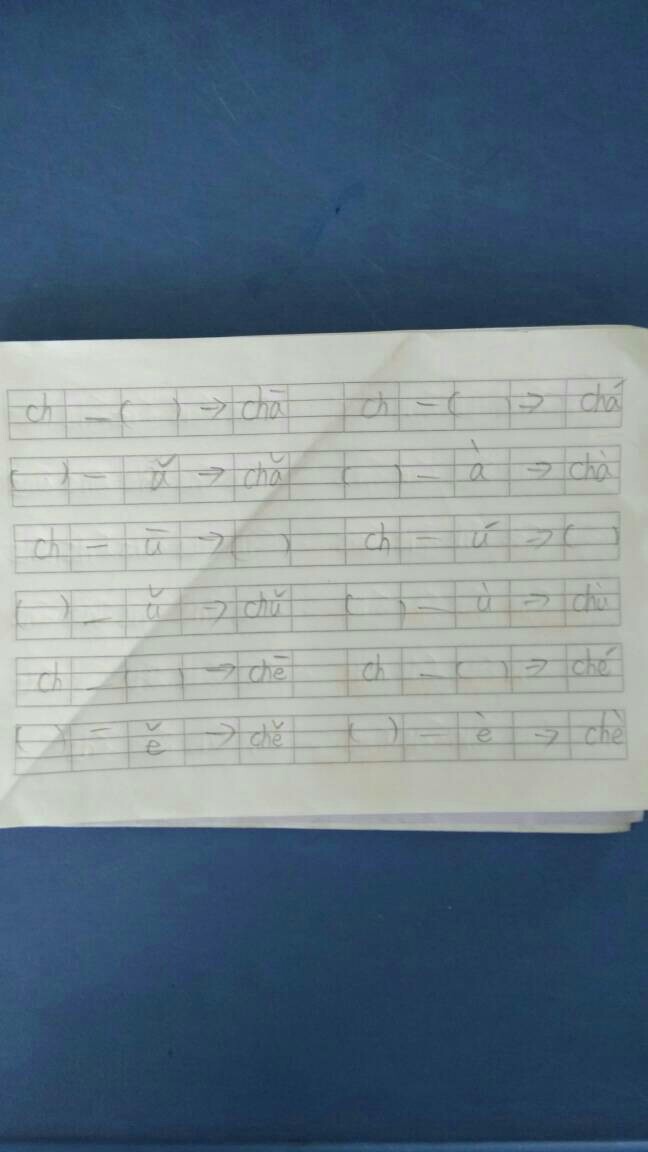 ch — ( ) → chā ch — ( ) → chá
( ) — ǎ → chǎ ( ) — à → chà
ch — ū → ( ) ch — ú → ( )
( ) — ǔ → chǔ ( ) — ù → chù
ch — ( ) → chē ch — ( ) → ché
( ) — ě → chě ( ) — è → chè